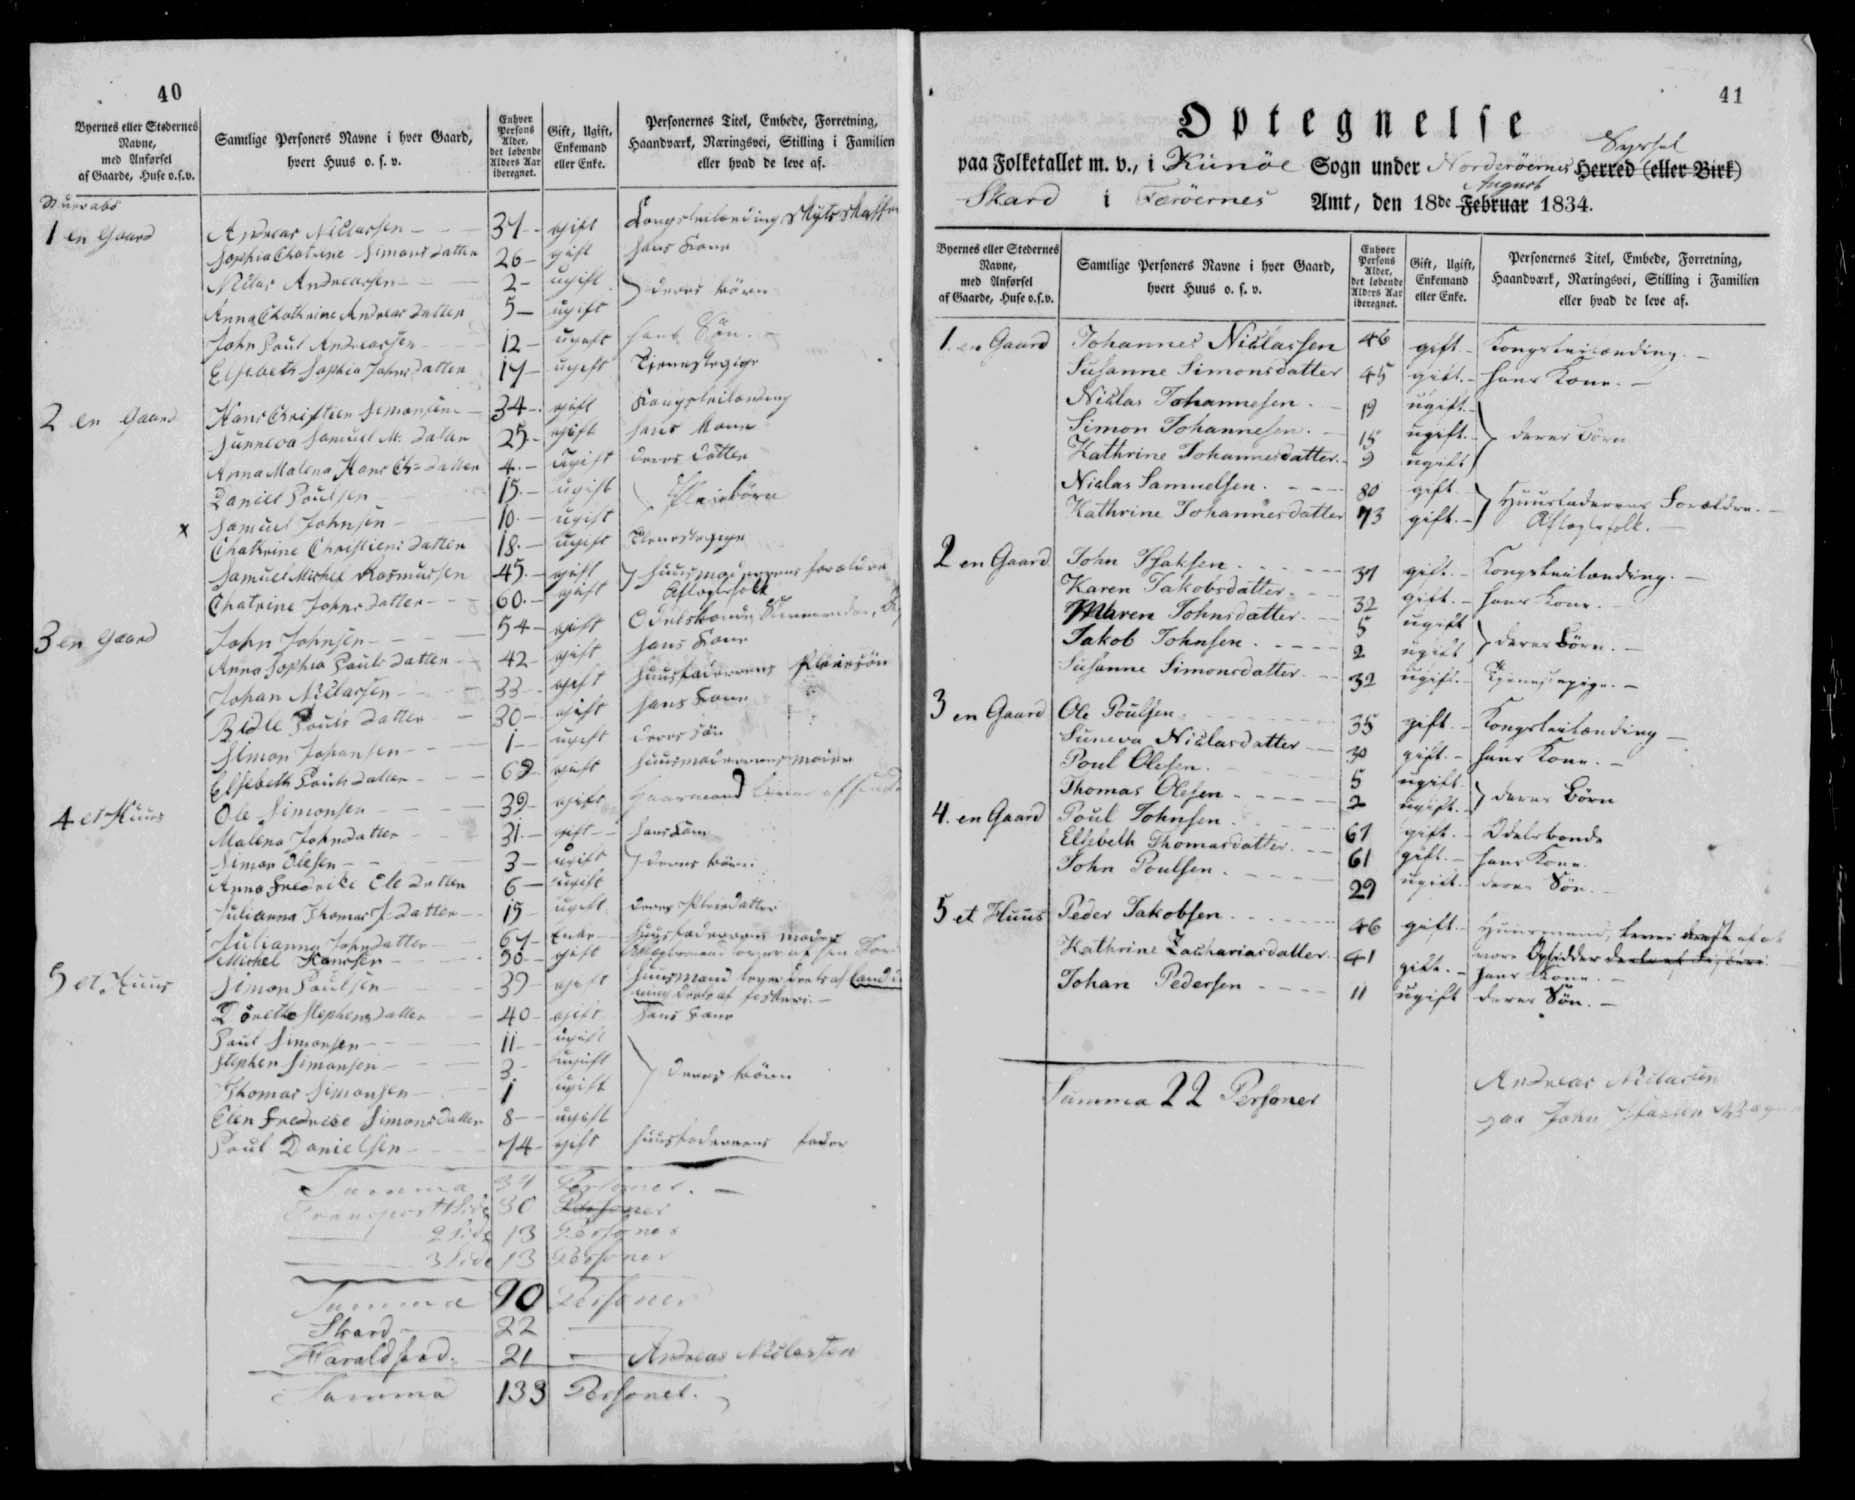 40
Byernes eller Stedernes Navne, med Anførsel af Gaarde, Huse o.s.v.
Samtlige Personers Navne i hver Gaard, hvert Huus o. s. v.
Enhver Persons Alder, det løbende Alders Aar iberegnet.
Gift, Ugift, Enkemand eller Enke.
Personernes Titel, Embede, Forretning, Haandværk, Næringsvei, Stilling i Familien eller hvad de leve af.
1 en Gaard Andreas Niclassen 37 gift Kongsleilending Skytsskaffer
Sophia Chatrine Simons datter 26 gift hans Kone
Niclas Andreassen 2 ugift deres börn
Anna Chathrine Andreas datter 5 ugift
John Poul Andreassen 12 ugift hans Sön.
Elsebeth Sophia Johns datter 17 ugift Tjenestepige
2 en Gaard Hans Christien Simonsen 34 gift Kongsleilending
Sunneva Samuel M. datter 25 gift hans Kone
Anna Malena Hans Ch= datter 4 ugift deres datter
Daniel Poulsen 15 ugift Pleiebörn
x Samuel Johnsen 10 ugift
Chatrine Christiens datter 18 ugift Tienestepige
Samuel Michel Rasmussen 45 gift huusmoderens forældre
Chatrine Johns datter 60 gift Aftægtsfolk
3 en Gaard John Johnsen 54 gift Odelsbonde
Anna Sophia Pouls datter 42 gift hans Kone
Johan Niclassen 33 gift huusfaderens Pleiesön
Bidle Pouls datter 30 gift hans Kone
Simon Johansen 1 ugift deres sön
Elsebeth Pouls datter 69 gift huusmoderens moder
4 et Huus Ole Simonsen 39 gift
Malena Johns datter 31 gift hans Kone
Simon Olesen 3 ugift deres börn
Anna Fredrike Ole datter 6 ugift
Julianna Thomas J. datter 15 ugift deres Pleiedatter
Julianna Johns datter 67 Enke huusfaderens moder
Michel Hansen 50 gift
5 et Huus Simon Poulsen 39 gift huusmand lever deels af
deels af fiskeri
Dorethe Stephens datter 40 gift hans Kone
Poul Simonsen 11 ugift
Stephen Simonsen 3 ugift deres börn
Thomas Simonsen 1 ugift
Elen Fredrike Simons datter 8 ugift
Poul Danielsen 74 gift huusfaderens fader
Summa 37 Personer.
Transport 1 Side 30 Personer
2 Side 13 Personer
3 Side 13 Personer
Summa 90 Personer
Skard 22
Haraldsund 21 Andreas Niclassen
Summa 133 Personer.
41
Optegnelse
Syssel
paa Folketallet m. v., i Kunöe Sogn under Norderöernes Herred (eller Birk)
August
Skard i Færöernes Amt, den 18de Februar 1834.
Byernes eller Stedernes Navne, med Anførsel af Gaarde, Huse o.s.v.
Samtlige Personers Navne i hver Gaard, hvert Huus o. s. v.
Enhver Persons Alder, det løbende Alders Aar iberegnet.
Gift, Ugift, Enkemand eller Enke.
Personernes Titel, Embede, Forretning, Haandværk, Næringsvei, Stilling i Familien eller hvad de leve af.
1. en Gaard Johannes Niclassen 46 gift Kongsleilænding.
Susanne Simonsdatter 45 gift. hans Kone.
Niclas Johannesen. 19 ugift.
Simon Johannesen. 15 ugift. deres Börn
Kathrine Johannesdatter. 9 ugift
Niclas Samuelsen. 80 gift Huusfaderens Forældre.
Kathrine Johannesdatter 73 gift. Aftægtsfolk.
2 en Gaard John Isaksen. 37 gift. Kongsleilænding.
Karen Jakobsdatter. 32 gift. hans Kone.
Maren Johnsdatter. 5 ugift
Jakob Johnsen. 2 ugift deres Börn.
Susanne Simonsdatter. 32 ugift. Tjenestepige.
3 en Gaard Ole Poulsen 35 gift. Kongsleilænding
Suneva Niclasdatter 30 gift. hans Kone.
Poul Olesen. 5 ugift
Thomas Olesen 2 ugift. deres Börn
4. en Gaard Poul Johnsen. 67 gift. Odelsbonde
Elsebeth Thomasdatter. 61 gift. hans Kone
John Poulsen. 29 ugift. deres Sön.
5 et Huus Peder Jakobsen. 46 gift. Huusmand, lever deels af at
være Opsidder deels af fiskeri
Kathrine Zachariasdatter. 41 gift. hans Kone.
Johan Pedersen 11 ugift deres Sön.
Summa 22 Personer
Andreas Niclassen
paa John Isaksen